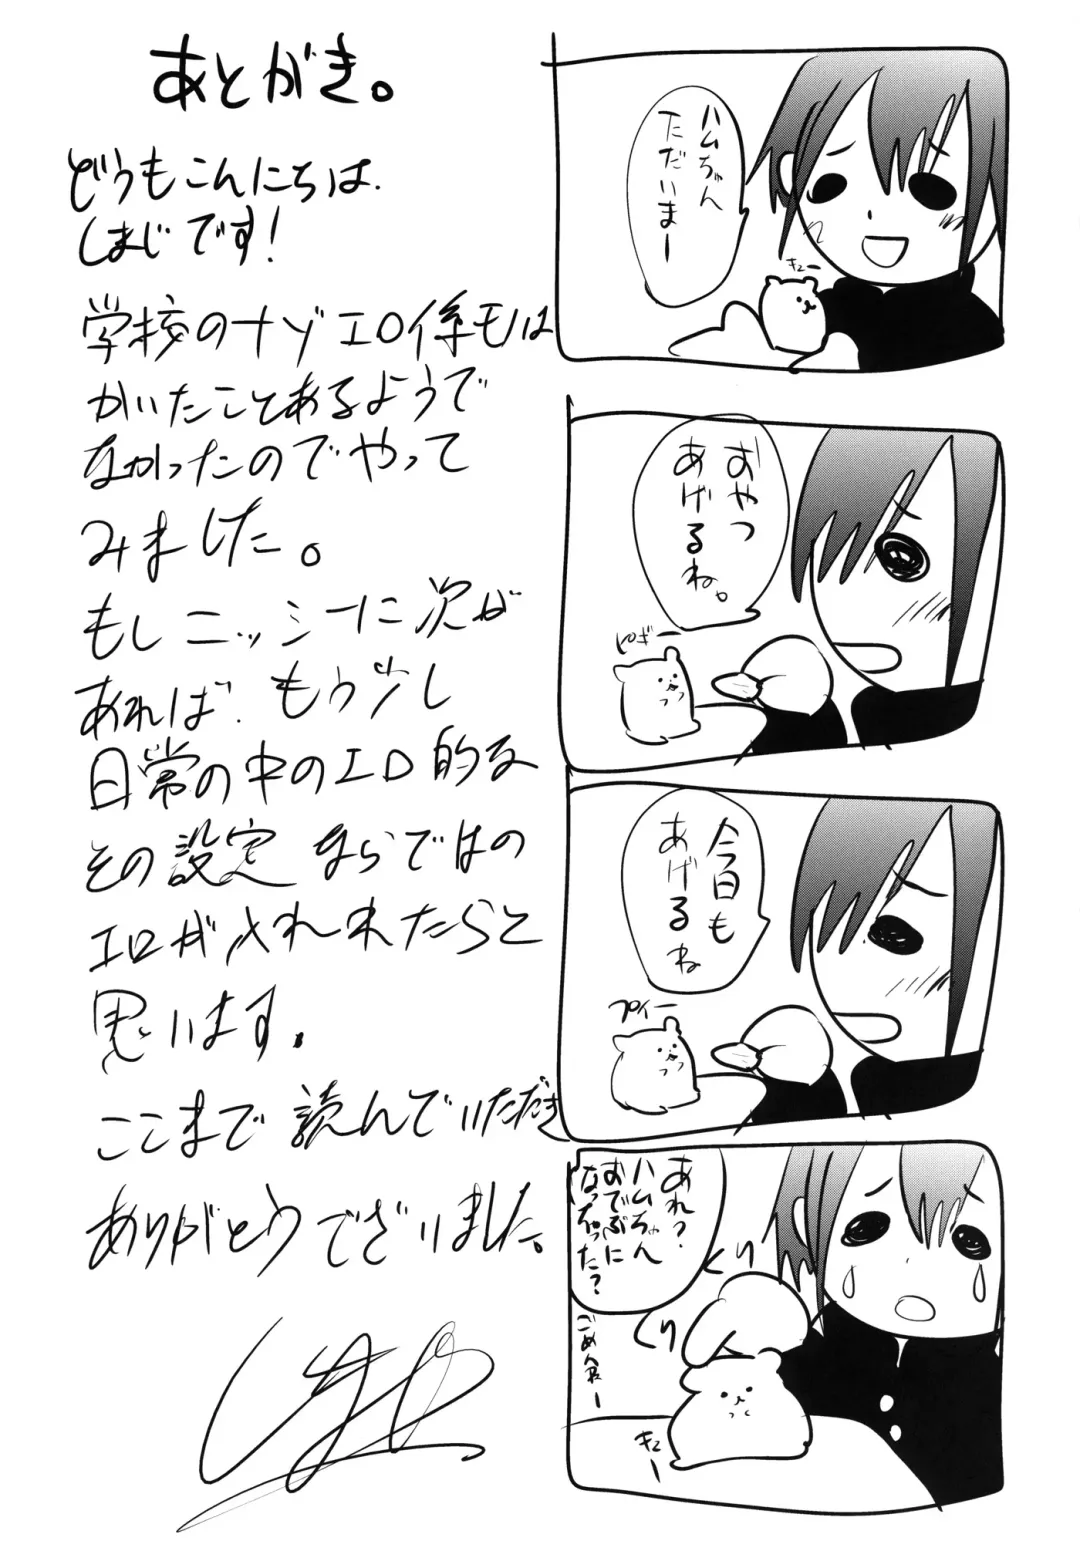 あとがき。
どうもこんにちは、
しまじです！
学校のナゾエロ係モノは
かいたことあるようで
なかったのでやって
みました。
もしニッシーに次が
あれば、もう少し
日常の中のエロ的な
その設定ならではの
エロがされれたらと
思います。
ここまで読んでいただき
ありがとうございました。
ハムちゃん
ただいまー
キュー
おやつ
あげるね。
ピギー
今日も
あげるね
プイー
あれ？
ハムちゃん
おでぶに
なっちゃった？
ごめんねー
くり
くり
キュー